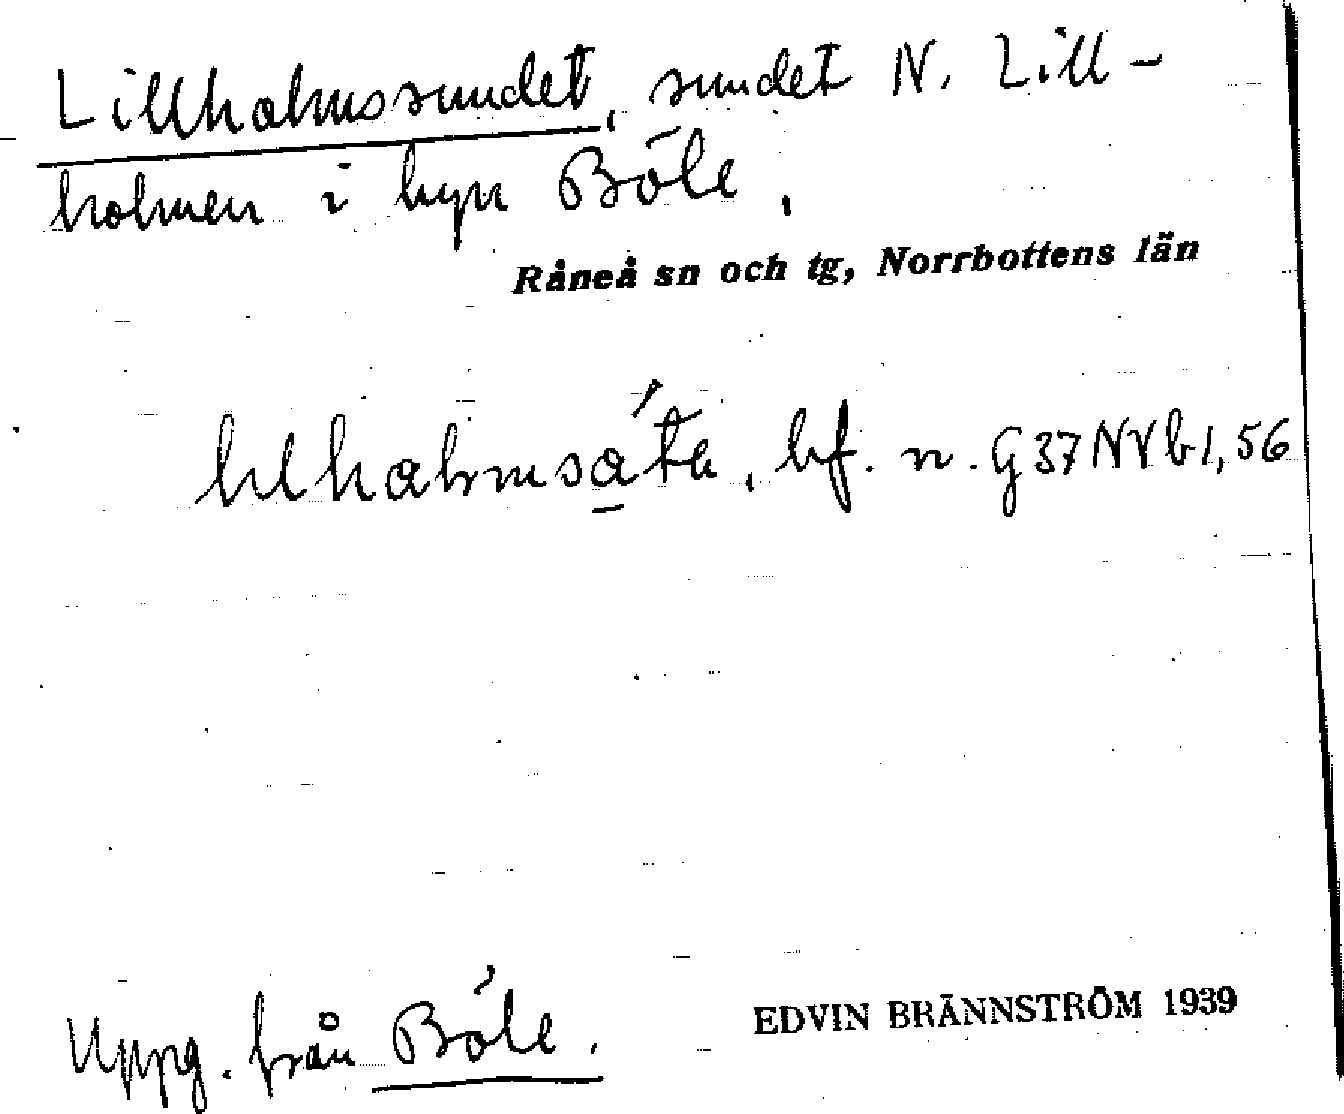 Lillholmssundet, sundet N. Lill-
holmen i byn Böle.
Råneå sn och tg, Norrbottens län
bf. n. G37NVb1,56
Uppg. från Böle.
EDVIN BRÄNNSTRÖM 1939